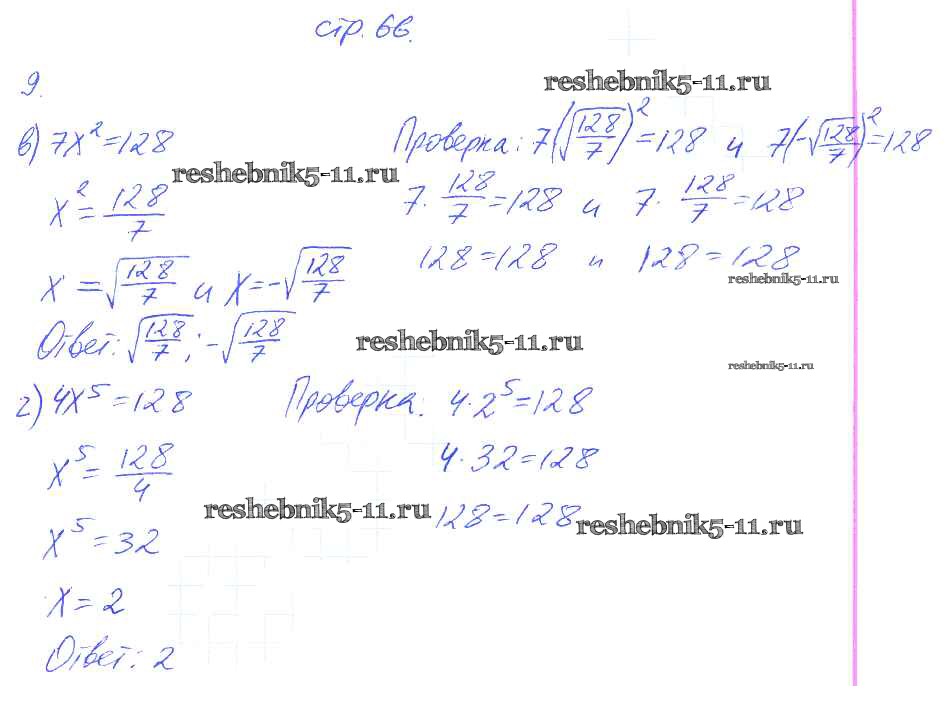 стр. 66.
9.
reshebnik5-11.ru
в) 7x² = 128 Проверка: 7(√(128/7))² = 128 и 7(-√(128/7))² = 128
reshebnik5-11.ru
x² = 128/7 7 · 128/7 = 128 и 7 · 128/7 = 128
x = √(128/7) и x = -√(128/7) 128 = 128 и 128 = 128
reshebnik5-11.ru
Ответ: √(128/7); -√(128/7)
reshebnik5-11.ru
reshebnik5-11.ru
г) 4x⁵ = 128 Проверка: 4 · 2⁵ = 128
x⁵ = 128/4 4 · 32 = 128
reshebnik5-11.ru 128 = 128 reshebnik5-11.ru
x⁵ = 32
x = 2
Ответ: 2